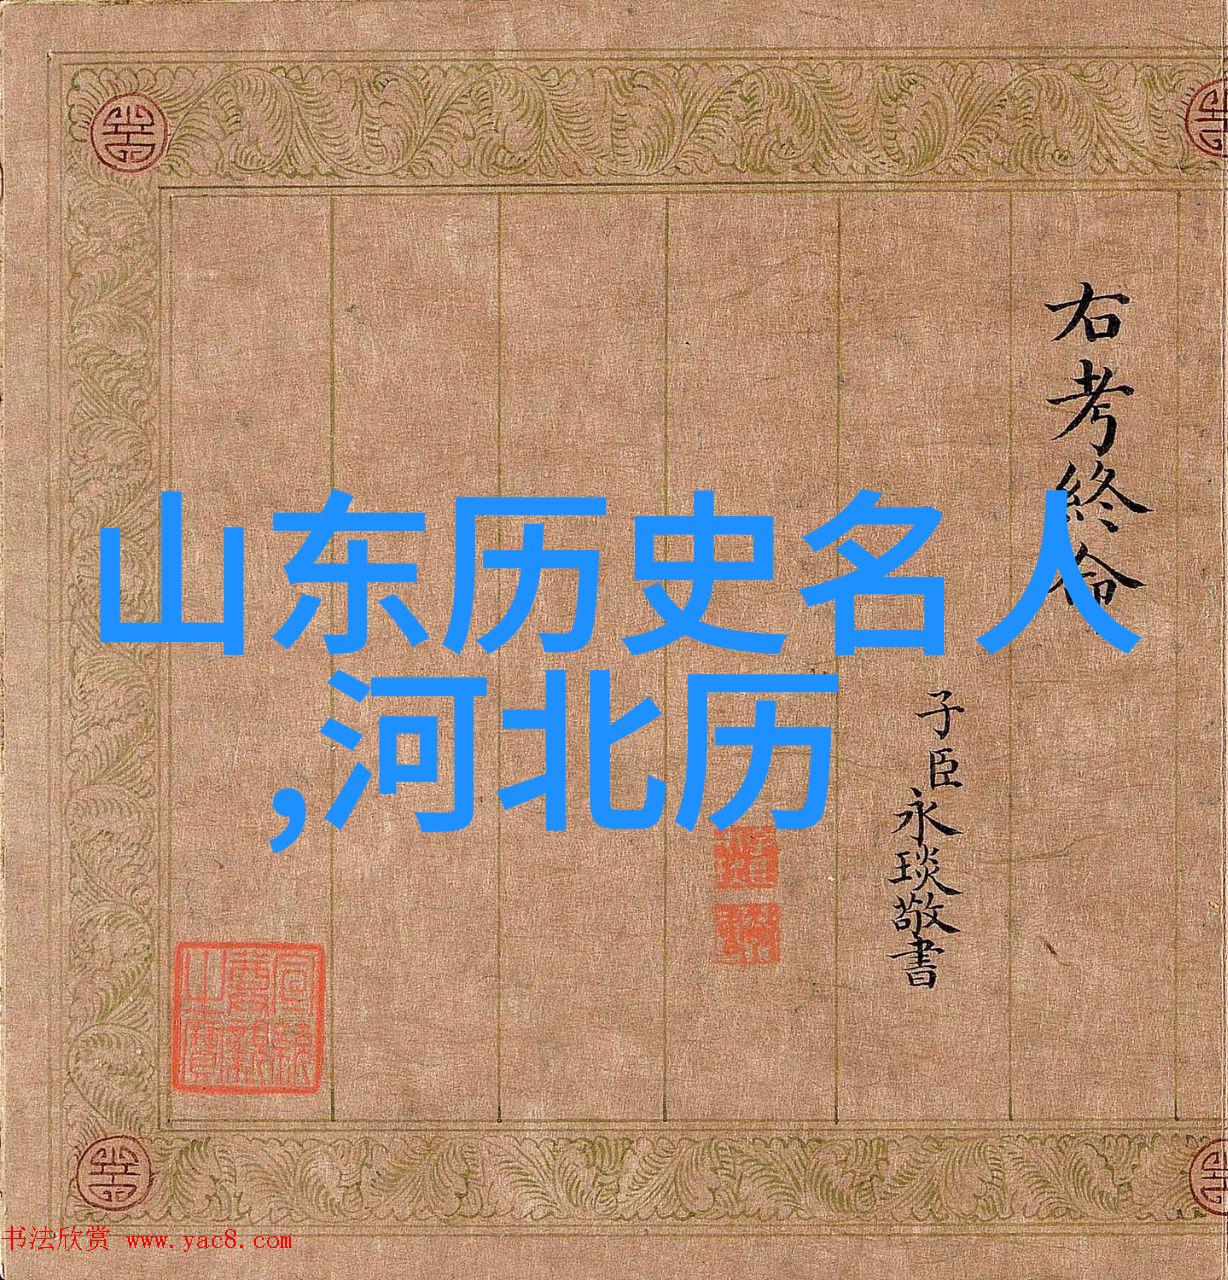 山东历史名人
,河北历
右考終命
子臣永琰敬書
书法欣赏 www.yac8.com